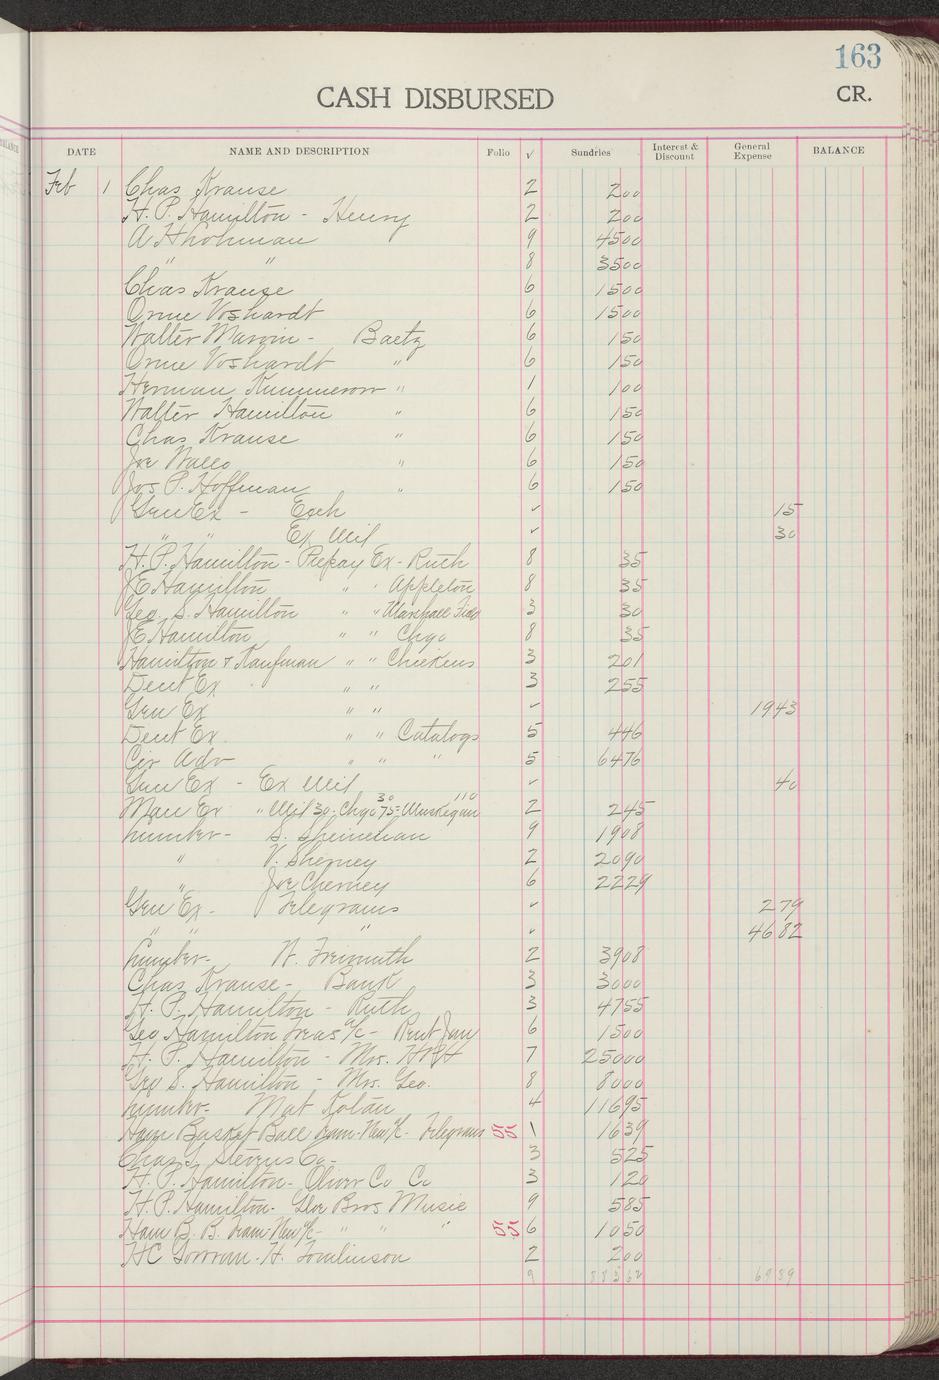 163
CASH DISBURSED
CR.
DATE NAME AND DESCRIPTION Folio √ Sundries Interest & Discount General Expense BALANCE
Feb 1 Chas Krause 2 200
H. P. Hamilton - Henry 2 200
A H Hohman 9 4500
" " 8 3500
Chas Krause 6 1500
Orme Voshardt 6 1500
Walter Marvin - Baetz 6 150
Orme Voshardt " 6 150
Herman Kummerow " 1 100
Walter Hamilton " 6 150
Chas Krause " 6 150
Joe Wallo " 6 150
Jos P. Hoffman " 6 150
Gen Ex - Exch ✓ 15
" " Ex Mil ✓ 30
H. P. Hamilton - Prepay Ex - Ruth 8 35
J E Hamilton " " Appleton 8 35
Geo. S. Hamilton " " Marshall Field 3 30
J E Hamilton " " Chgo 8 35
Hamilton & Kaufman " " Chickens 3 201
Dent Ex " " 3 255
Gen Ex " " ✓ 1943
Dent Ex " " Catalogs 5 446
Cir Adv " " " 5 6476
Gen Ex - Ex Mil ✓ 40
Man Ex " Mil 30 - Chgo 30 75 = Muskegan 110 2 245
Lumber - S. 9 1908
" V. Sherney 2 2090
" Joe Cherney 6 2229
Gen Ex - Telegrams ✓ 279
" " " ✓ 4682
Lumber - W. Freimuth 2 3908
Chas Krause - Bank 3 3000
H. P. Hamilton - Ruth 3 4755
Geo Hamilton Treas a/c - Rent Jan 6 1500
H. P. Hamilton - Mrs. HPH 7 25000
Geo S. Hamilton - Mrs. Geo. 8 8000
Lumber - Mat Kolan 4 11695
Ham Basket Ball Team - New a/c - Telegrams 55 1 1639
Chas A Stevens Co - 3 525
H. P. Hamilton - Oliver Co Co 3 120
H. P. Hamilton - Bros Music 9 585
Ham B. B. Team - New a/c - " " " 55 6 1050
HC Gorman - H. Tomlinson 2 200
9 88362 6989